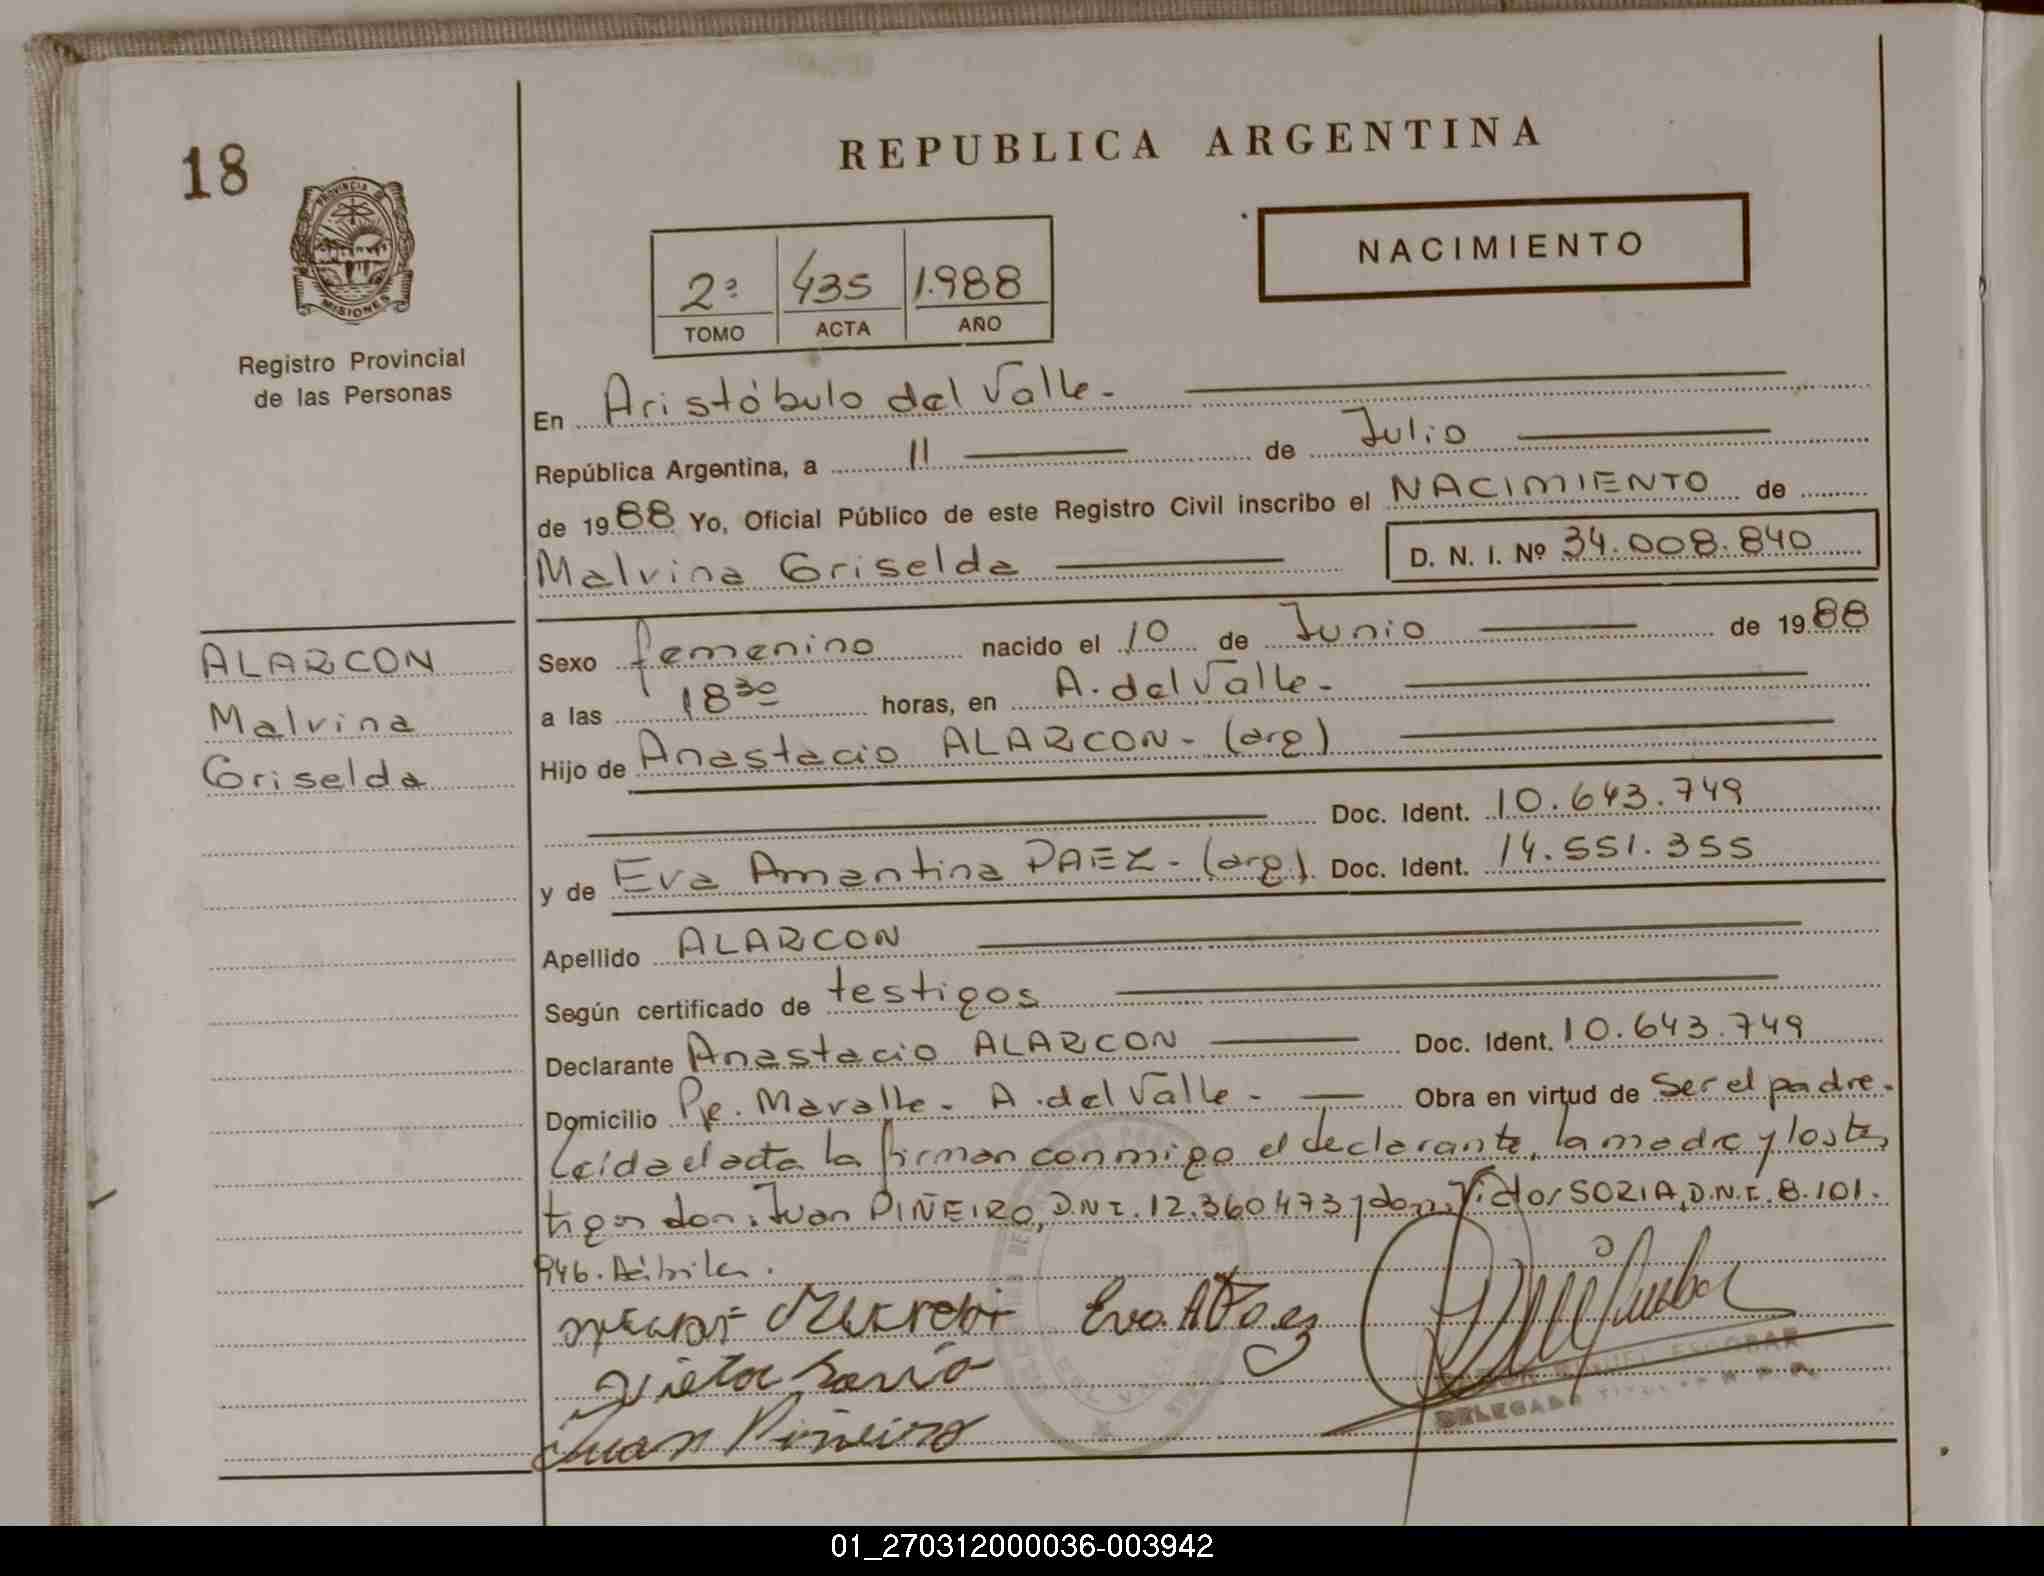 18
REPUBLICA ARGENTINA
PROVINCIA DE
MISIONES
NACIMIENTO
2º 435 1.988
TOMO ACTA AÑO
Registro Provincial
de las Personas
En Aristóbulo del Valle.-
República Argentina, a 11 de Julio
de 1988 Yo, Oficial Público de este Registro Civil inscribo el NACIMIENTO de
Malvina Griselda D. N. I. Nº 34.008.840
ALARCON
Malvina
Griselda
Sexo femenino nacido el 10 de Junio de 1988
a las 18 30 horas, en A. del Valle.-
Hijo de Anastacio ALARCON.- (arg)
Doc. Ident. 10.643.749
y de Eva Amantina PAEZ.- (arg). Doc. Ident. 14.551.355
Apellido ALARCON
Según certificado de testigos
Declarante Anastacio ALARCON Doc. Ident. 10.643.749
Domicilio Pje. Mavalle.- A. del Valle.- Obra en virtud de Ser el padre.
Leída el acta la firman conmigo el declarante, la madre y los tes
tigos don: Juan PIÑEIRO, D.N.I. 12.360473 y don Victor SORIA, D.N.I. 8.101.
946.
Eva A Paez
Juan Piñeiro
ESCOBAR
DELEGADO
01_270312000036-003942